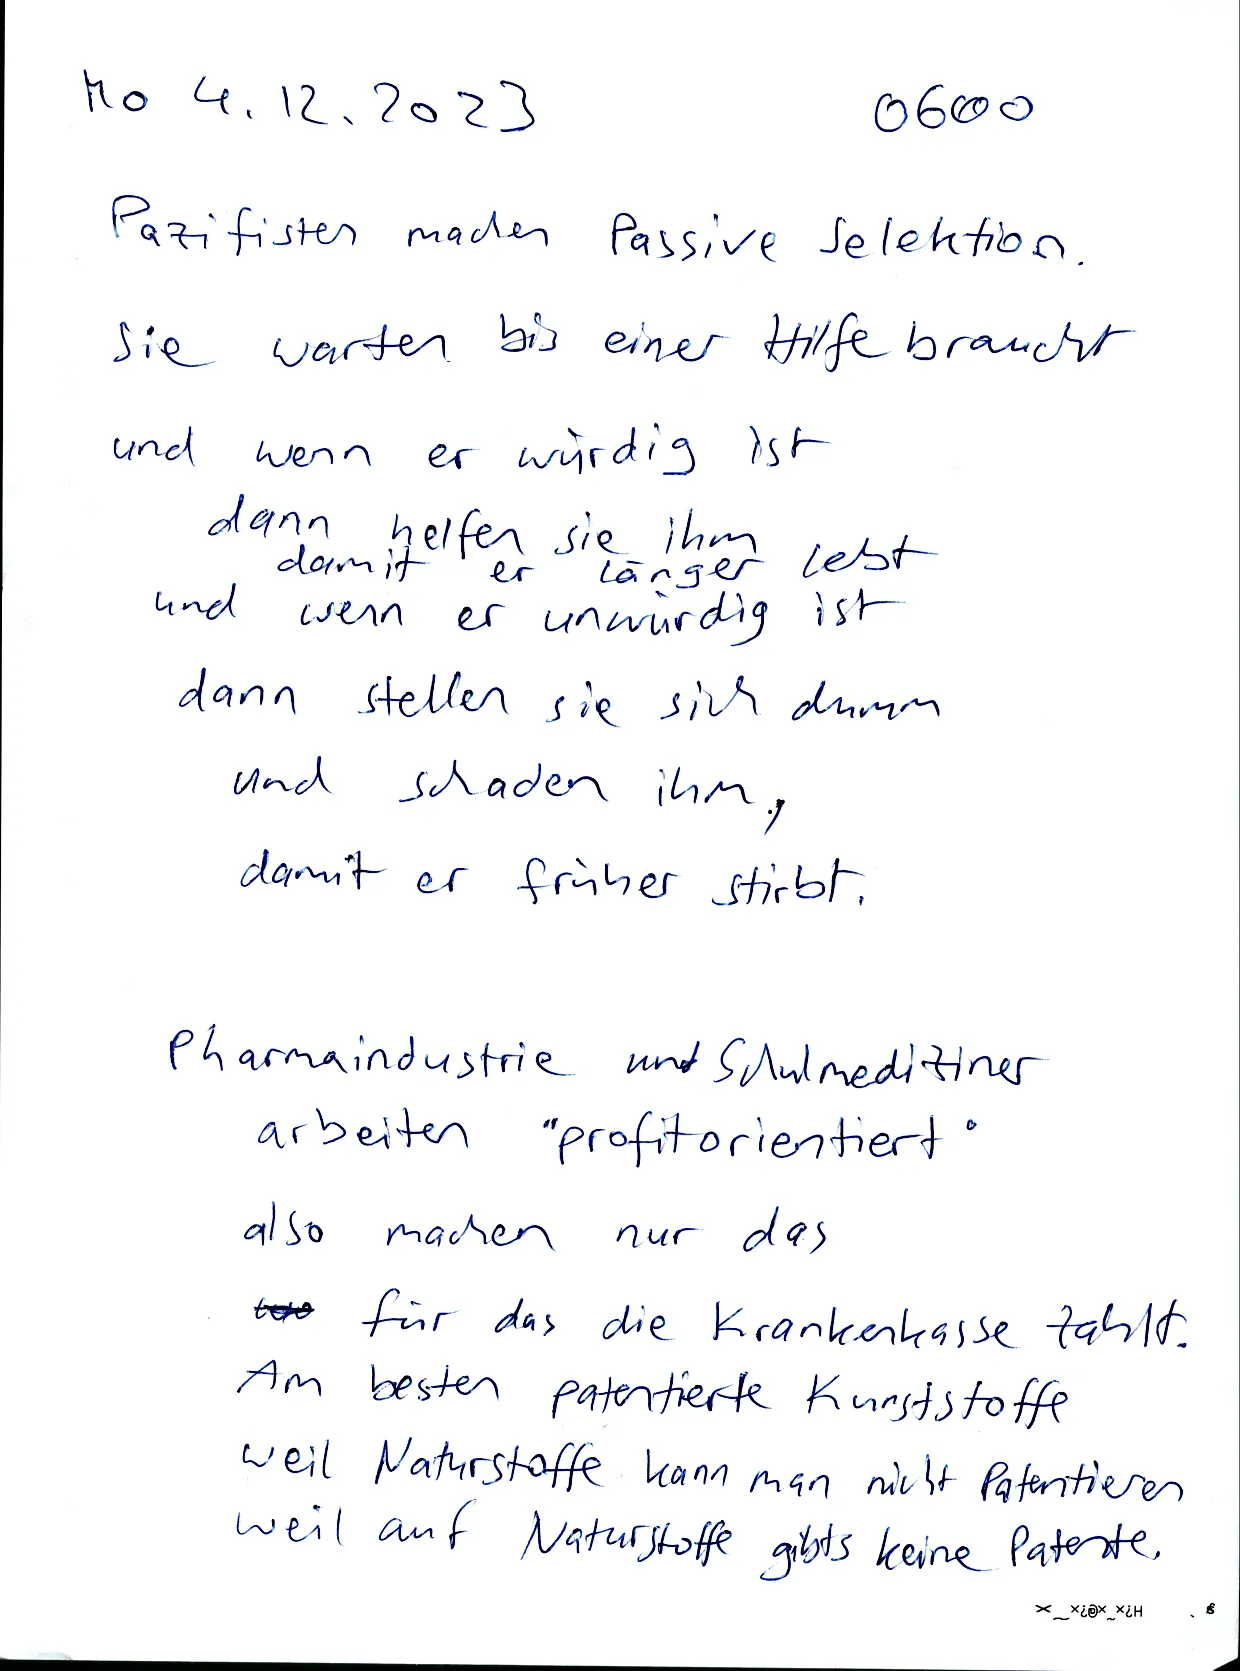 Mo 4.12.2023 0600
Pazifisten machen Passive Selektion.
Sie warten bis einer Hilfe braucht
und wenn er würdig ist
dann helfen sie ihm
damit er länger lebt
und wenn er unwürdig ist
dann stellen sie sich dumm
und schaden ihm,
damit er früher stirbt.
Pharmaindustrie und Schulmediziner
arbeiten "profitorientiert"
also machen nur das
für das die Krankenkasse zahlt.
Am besten patentierte Kunststoffe
weil Naturstoffe kann man nicht Patentieren
weil auf Naturstoffe gibts keine Patente.